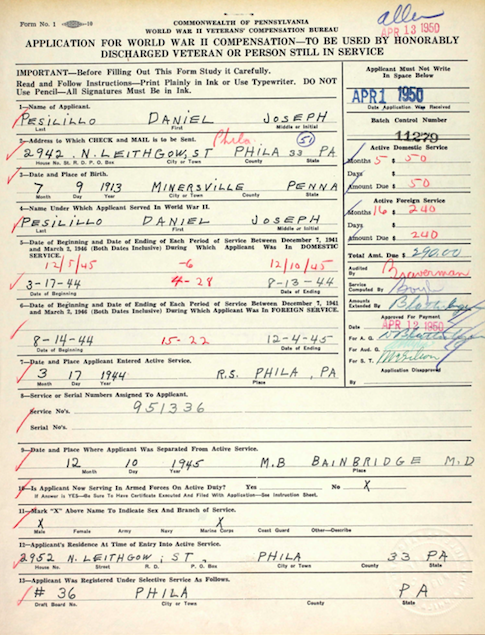 Form No. 1
COMMONWEALTH OF PENNSYLVANIA
WORLD WAR II VETERANS' COMPENSATION BUREAU
allen
APR 13 1950
APPLICATION FOR WORLD WAR II COMPENSATION—TO BE USED BY HONORABLY
DISCHARGED VETERAN OR PERSON STILL IN SERVICE
IMPORTANT—Before Filling Out This Form Study it Carefully.
Read and Follow Instructions—Print Plainly in Ink or Use Typewriter. DO NOT
Use Pencil—All Signatures Must be in Ink.
Applicant Must Not Write
In Space Below
APR 1 1950
Date Application Was Received
Batch Control Number
11279
Active Domestic Service
Months 5 $ 50
Days $
Amount Due $ 50
Active Foreign Service
Months 16 $ 240
Days $
Amount Due $ 240
Total Amt. Due $ 290.00
Audited By Braverman
Service Computed By
Amounts Extended By
Approved For Payment
Date APR 12 1950
For A. G.
For Aud. G.
For S. T.
Application Disapproved
By
1—Name of Applicant.
PESILILLO DANIEL JOSEPH
Last First Middle or Initial
2—Address to Which CHECK and MAIL is to be Sent. Phila. 51
2942 N. LEITHGOW, ST PHILA 33 PA
House No. St. R.D. P.O. Box City or Town County State
3—Date and Place of Birth.
7 9 1913 MINERSVILLE PENNA
Month Day Year City or Town County State
4—Name Under Which Applicant Served In World War II.
PESILILLO DANIEL JOSEPH
Last First Middle or Initial
5—Date of Beginning and Date of Ending of Each Period of Service Between December 7, 1941
and March 2, 1946 (Both Dates Inclusive) During Which Applicant Was In DOMESTIC
SERVICE.
12/5/45 -6 12/10/45
3-17-44 4-28 8-13-44
Date of Beginning Date of Ending
6—Date of Beginning and Date of Ending of Each Period of Service Between December 7, 1941
and March 2, 1946 (Both Dates Inclusive) During Which Applicant Was In FOREIGN SERVICE.
8-14-44 15-22 12-4-45
Date of Beginning Date of Ending
7—Date and Place Applicant Entered Active Service.
3 17 1944 R.S. PHILA, PA
Month Day Year Place
8—Service or Serial Numbers Assigned To Applicant.
Service No's. 951336
Serial No's.
9—Date and Place Where Applicant Was Separated From Active Service.
12 10 1945 M.B BAINBRIDGE M.D
Month Day Year Place
10—Is Applicant Now Serving In Armed Forces On Active Duty? Yes No X
If Answer is YES—Be Sure To Have Certificate Executed And Filed With Application—See Instruction Sheet.
11—Mark "X" Above Name To Indicate Sex And Branch of Service.
X X
Male Female Army Navy Marine Corps Coast Guard Other—Describe
12—Applicant's Residence At Time of Entry Into Active Service.
2952 N. LEITHGOW, ST, PHILA 33 PA
House No. Street R.D. P.O. Box City or Town County State
13—Applicant Was Registered Under Selective Service As Follows.
# 36 PHILA PA
Draft Board No. City or Town County State